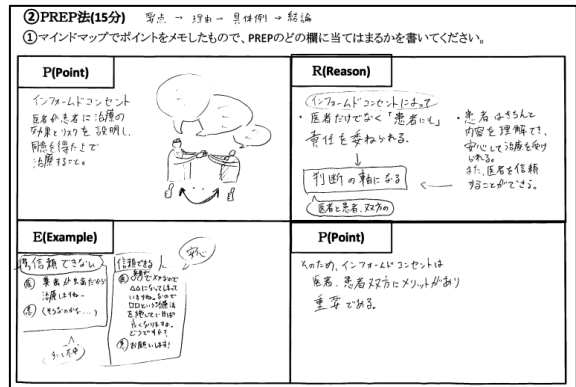 ②PREP法(15分) 要点 → 理由 → 具体例 → 結論
①マインドマップでポイントをメモしたもので、PREPのどの欄に当てはまるかを書いてください。
P(Point)
インフォームドコンセント
医者が患者に治療の
効果とリスクを説明し、
同意を得た上で
治療すること。
R(Reason)
インフォームドコンセントによって
・医者だけでなく「患者にも」
責任を委ねられる。
↓
判断の軸になる
医者と患者、双方の
・患者はきちんと
内容を理解でき、
安心して治療を受け
られる。
また、医者を信頼
することができる。
E(Example)
信頼できない
医
治療しますねー
患 (そうなのかな....)
信頼できる
安心
医
△△になってしまって
いますね。なので
□□という治療法
を施していけば
良くなりますよ。
どうですか?
患 お願いします!
P(Point)
そのため、インフォームドコンセントは
医者、患者双方にメリットがあり
重要である。